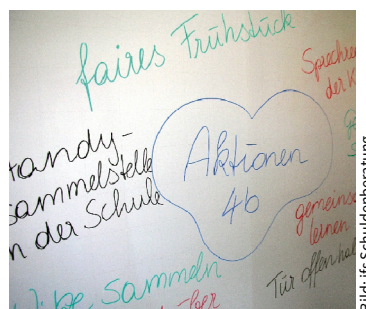 faires Frühstück
der
Handy-
sammelstelle
in der Schule
Aktionen
4b
gemeins
lernen
Tür offenhal
sammeln
Bild: ifs Schuldenberatung